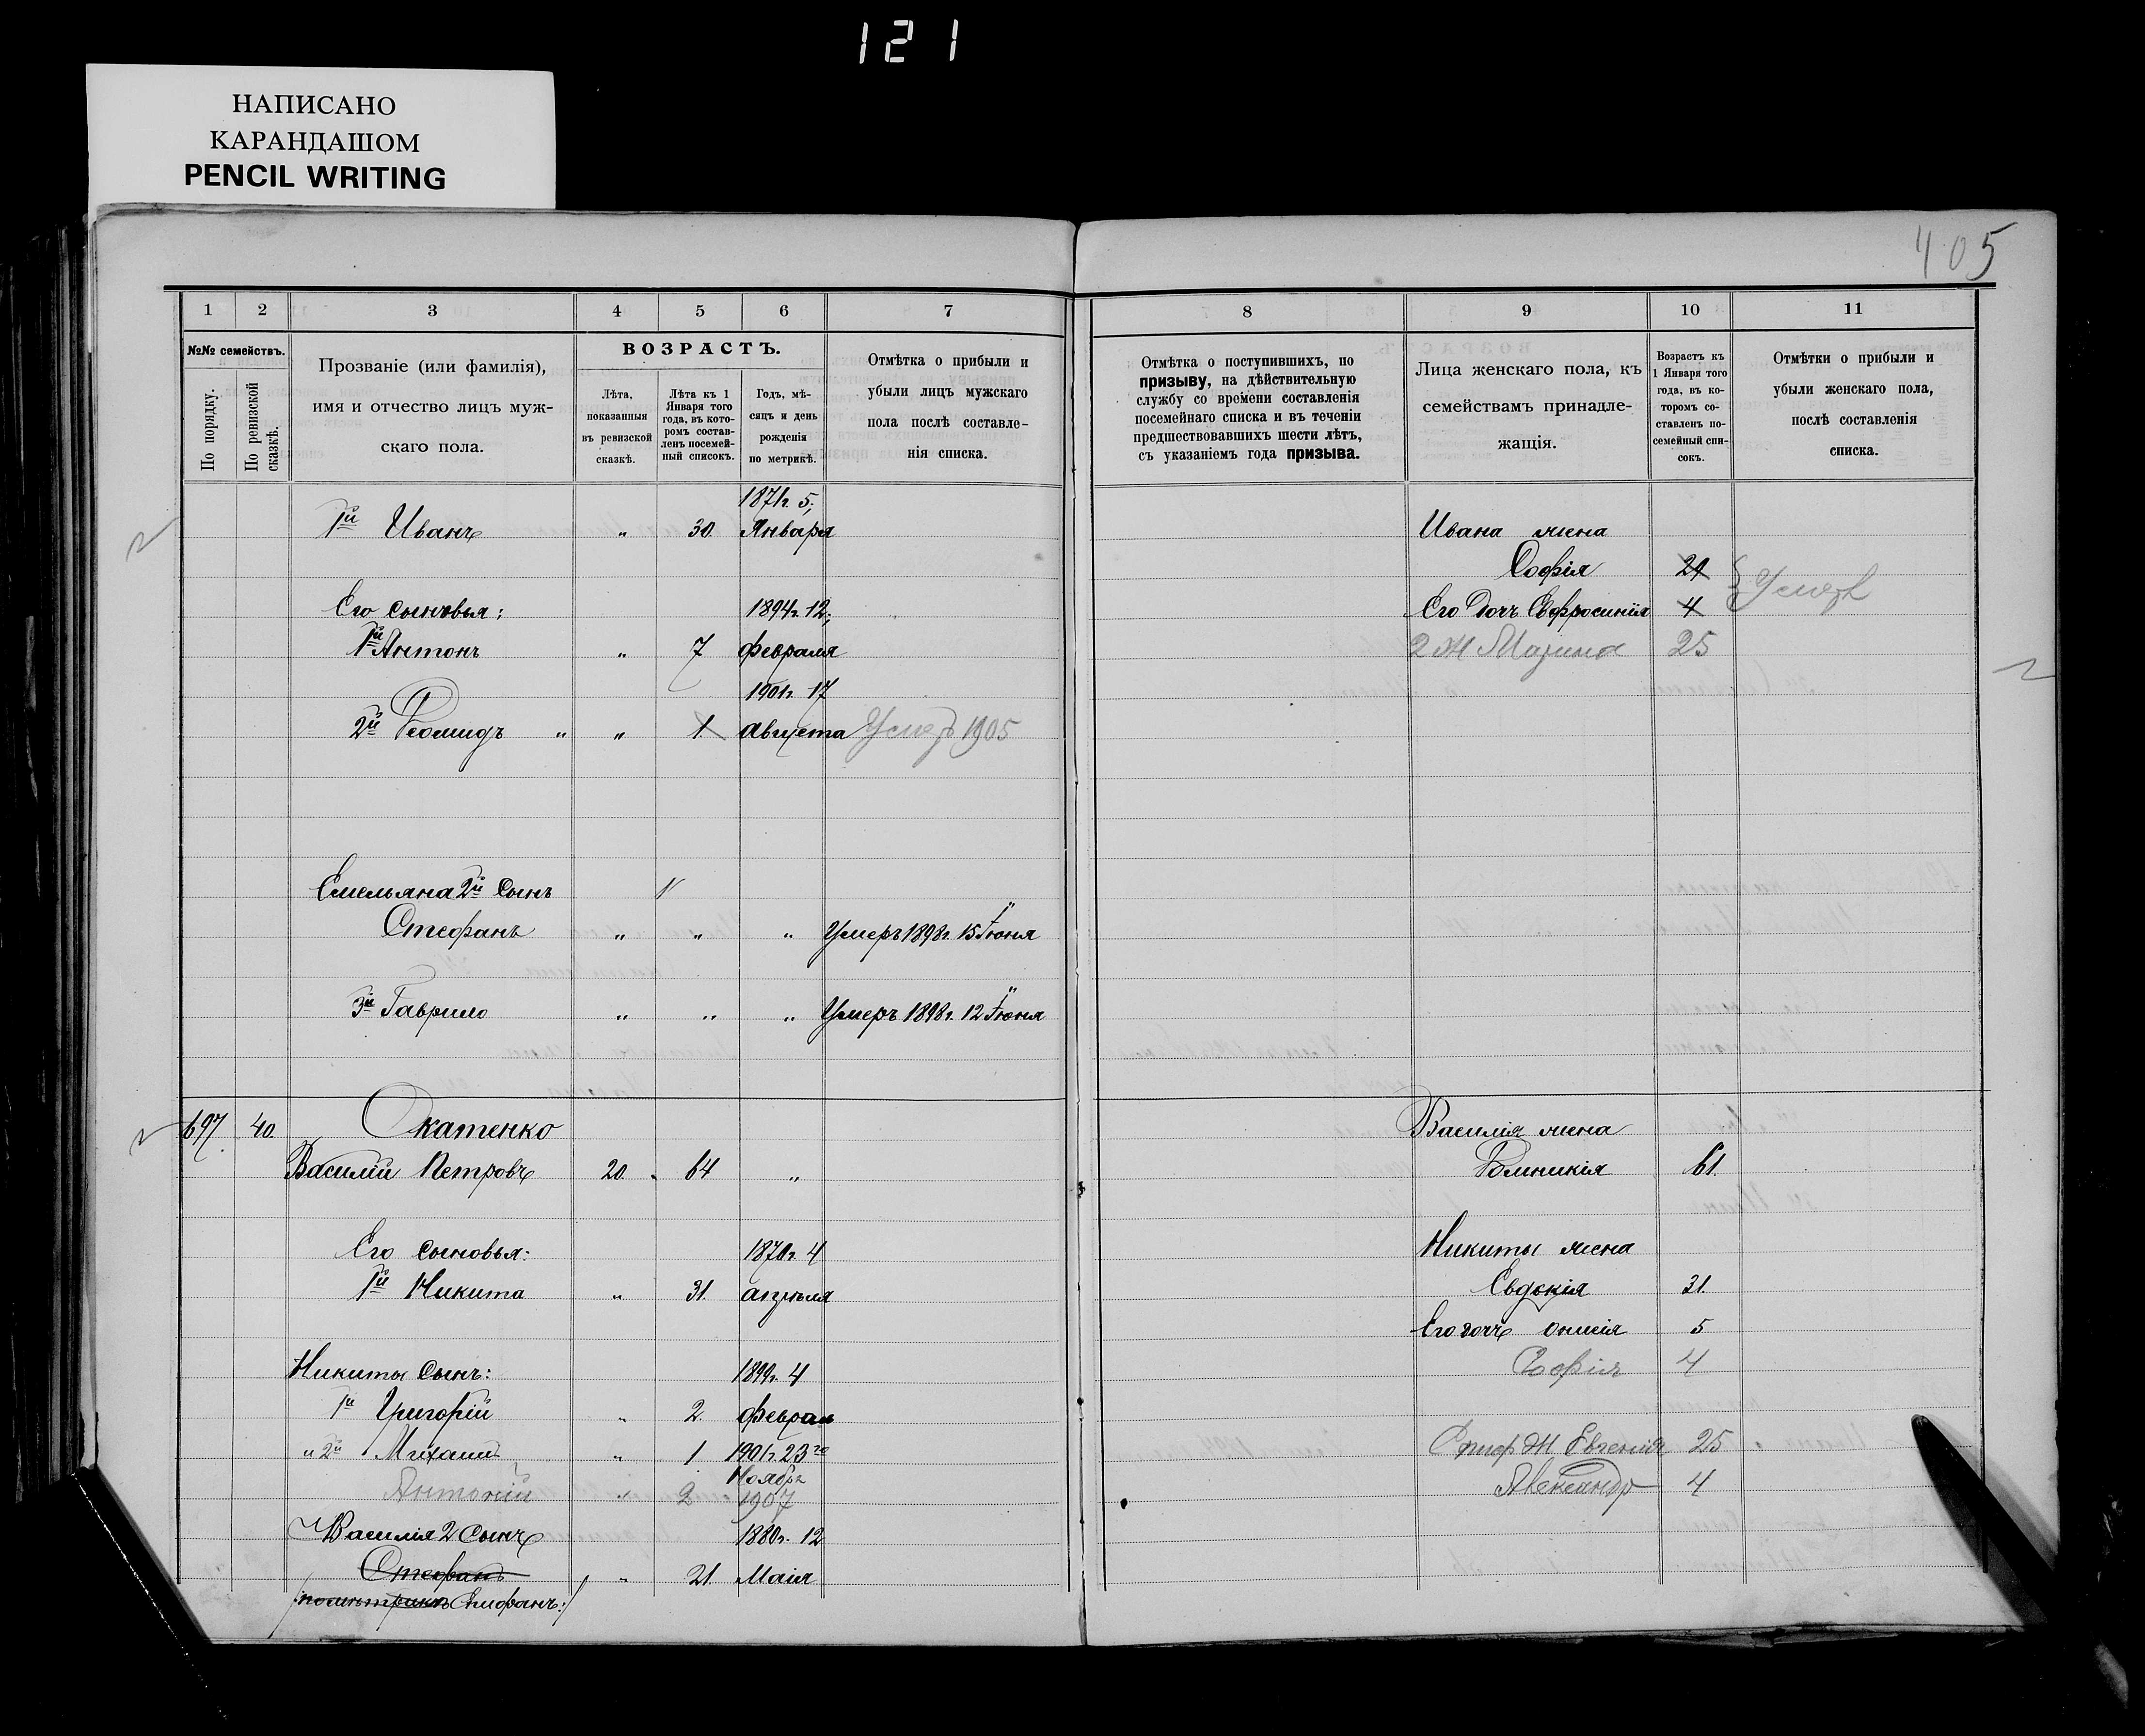 121
НАПИСАНО
КАРАНДАШОМ
PENCIL WRITING
405
1 2 3 4 5 6 7 8 9 10 11
№№ семействъ.
По порядку.
По ревизской сказкѣ.
Прозваніе (или фамилія),
имя и отчество лицъ муж-
скаго пола.
ВОЗРАСТЪ.
Лѣта,
показанныя
въ ревизской
сказкѣ.
Лѣта къ 1
Января того
года, въ кото-
ромъ состав-
ленъ посемей-
ный списокъ.
Годъ, мѣ-
сяцъ и день
рожденія
по метрикѣ.
Отмѣтка о прибыли и
убыли лицъ мужскаго
пола послѣ составле-
нія списка.
Отмѣтка о поступившихъ, по
призыву, на дѣйствительную
службу со времени составленія
посемейнаго списка и въ теченіи
предшествовавшихъ шести лѣтъ,
съ указаніемъ года призыва.
Лица женскаго пола, къ
семействамъ принадле-
жащія.
Возрастъ къ
1 Января того
года, въ ко-
торомъ со-
ставленъ по-
семейный спи-
сокъ.
Отмѣтки о прибыли и
убыли женскаго пола,
послѣ составленія
списка.
1871г. 5;
1й Иванъ " 30. Января
Его сыновья: 1894г. 12;
1й Антонъ " 7 февраля
1901г. 17
2й Леомидъ " " 1. августа Умеръ 1905
Емельяна 2й Сынъ
Стефанъ " " " Умеръ 1898г. 15 Іюня
3й Гаврило " " " Умеръ 1898г. 12 Іюня
697. 40. Скатенко
Василій Петровъ 20. 64 "
Его сыновья: 1870г. 4
1й Никита " 31. апрѣля
Никиты Сынъ: 1899г. 4
1й Григорій " 2. феврал
" 2й Михаилъ " 1 1901г. 23го
Ноября
Антоній " 2 1907
Василія 2 Сынъ 1880г. 12
Стефанъ " 21 Маія
/:по метрикѣ Епифанъ:/
Ивана жена
Софія 21
Его дочь Евфросинія 4 Умер
2 Ж Марина 25
Василія жена
Домникія 61.
Никиты жена
Евдокія 31.
Его дочь Онисія 5
Софія 4
Епиф Ж Евгенія 25
Александр 4